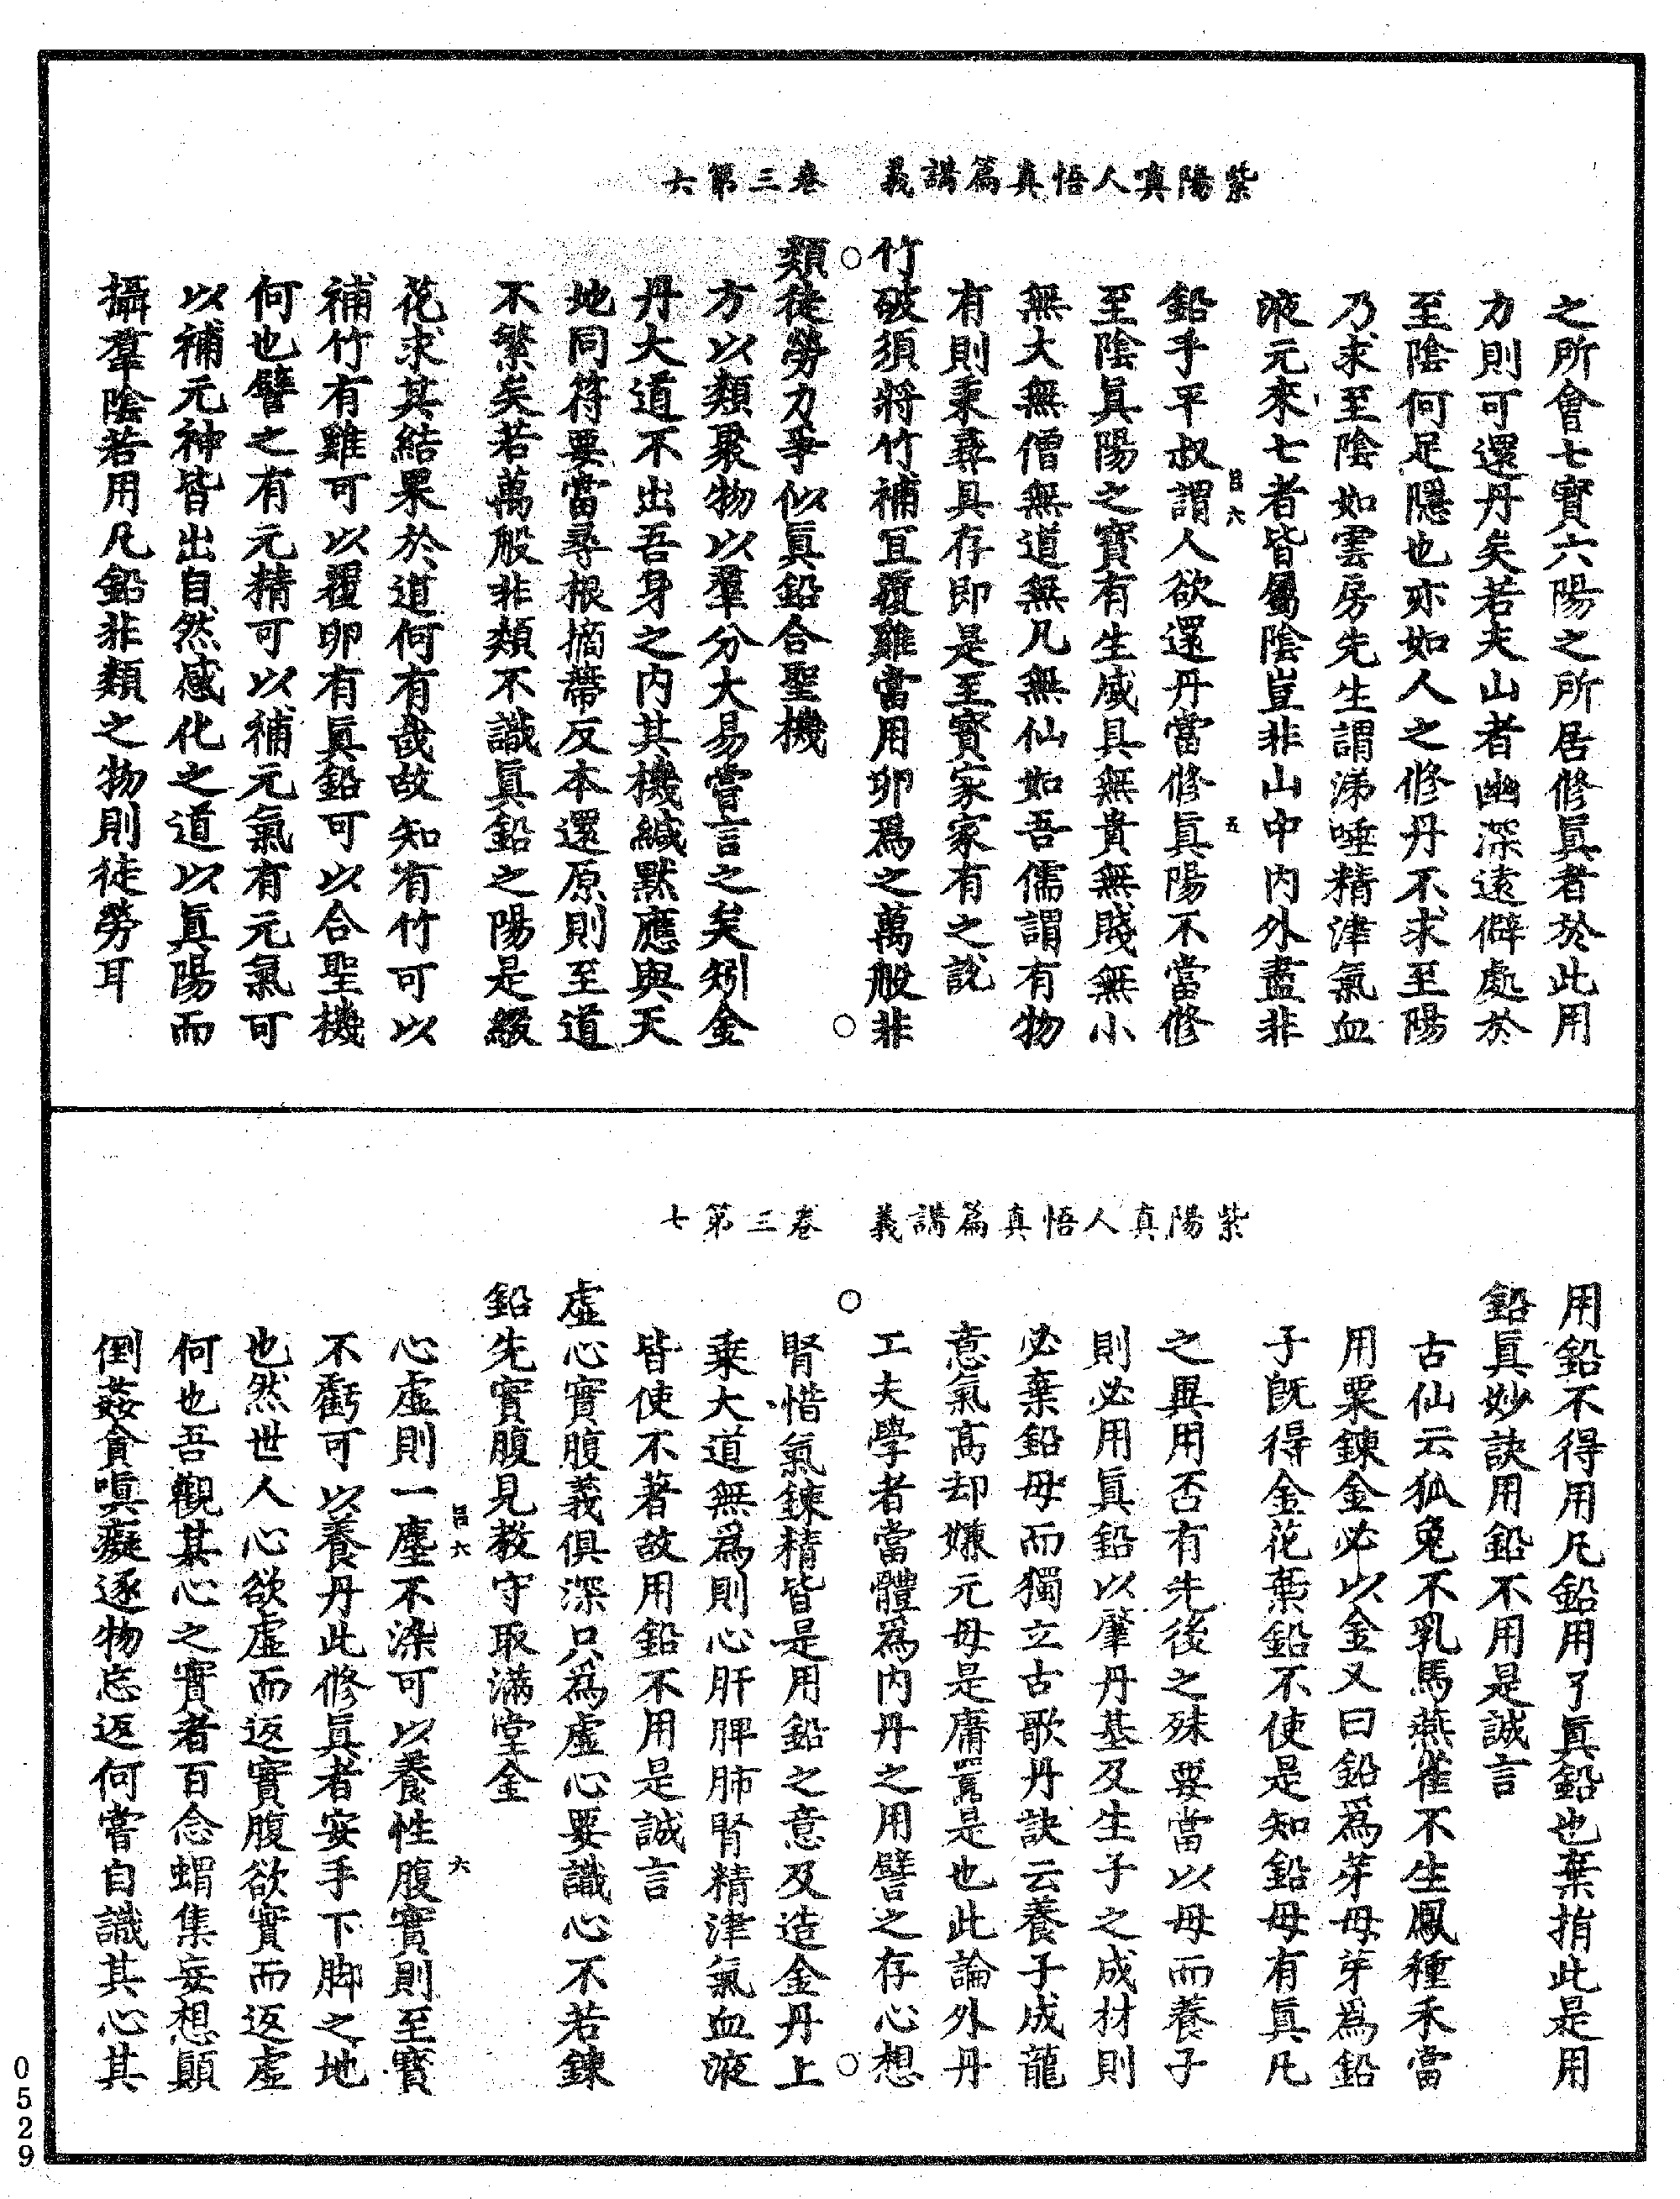 紫陽真人悟真篇講義　卷三第六
之所會七寶六陽之所居修眞者於此用
力則可還丹矣若夫山者幽深遠僻處於
至陰何足隱也亦如人之修丹不求至陽
乃求至陰如雲房先生謂涕唾精津氣血
液元來七者皆屬陰豈非山中內外盡非
鉛乎平叔謂人欲還丹當修眞陽不當修
呂六
五
至陰眞陽之寶有生咸具無貴無賤無小
無大無僧無道無凡無仙如吾儒謂有物
有則秉彝具存即是至寶家家有之說
竹破須將竹補宜覆雞當用卵爲之萬般非
○類徒勞力爭似眞鉛合聖機○
方以類聚物以羣分大易嘗言之矣矧金
丹大道不出吾身之內其機緘默應與天
地同符要當尋根摘蔕反本還原則至道
不繁矣若萬般非類不識眞鉛之陽是綴
花求其結果於道何有哉故知有竹可以
補竹有雞可以覆卵有眞鉛可以合聖機
何也譬之有元精可以補元氣有元氣可
以補元神皆出自然感化之道以眞陽而
攝羣陰若用凡鉛非類之物則徒勞耳
紫陽真人悟真篇講義　卷三第七
用鉛不得用凡鉛用了眞鉛也棄捐此是用
鉛眞妙訣用鉛不用是誠言
古仙云狐兔不乳馬燕雀不生鳳種禾當
用粟鍊金必以金又曰鉛爲芽母芽爲鉛
子旣得金花棄鉛不使是知鉛母有眞凡
之異用否有先後之殊要當以母而養子
則必用眞鉛以肇丹基及生子之成材則
必棄鉛母而獨立古歌丹訣云養子成龍
意氣高却嫌元母是庸嚚是也此論外丹
工夫學者當體爲內丹之用譬之存心想
○腎惜氣鍊精皆是用鉛之意及造金丹上○
乘大道無爲則心肝脾肺腎精津氣血液
皆使不著故用鉛不用是誠言
虛心實腹義俱深只爲虛心要識心不若鍊
鉛先實腹見教守取滿堂金
呂六
六
心虛則一塵不染可以養性腹實則至寳
不虧可以養丹此修眞者安手下脚之地
也然世人心欲虛而返實腹欲實而返虛
何也吾觀其心之實者百念蝟集妄想顚
倒姦貪嗔癡逐物忘返何嘗自識其心其
0529